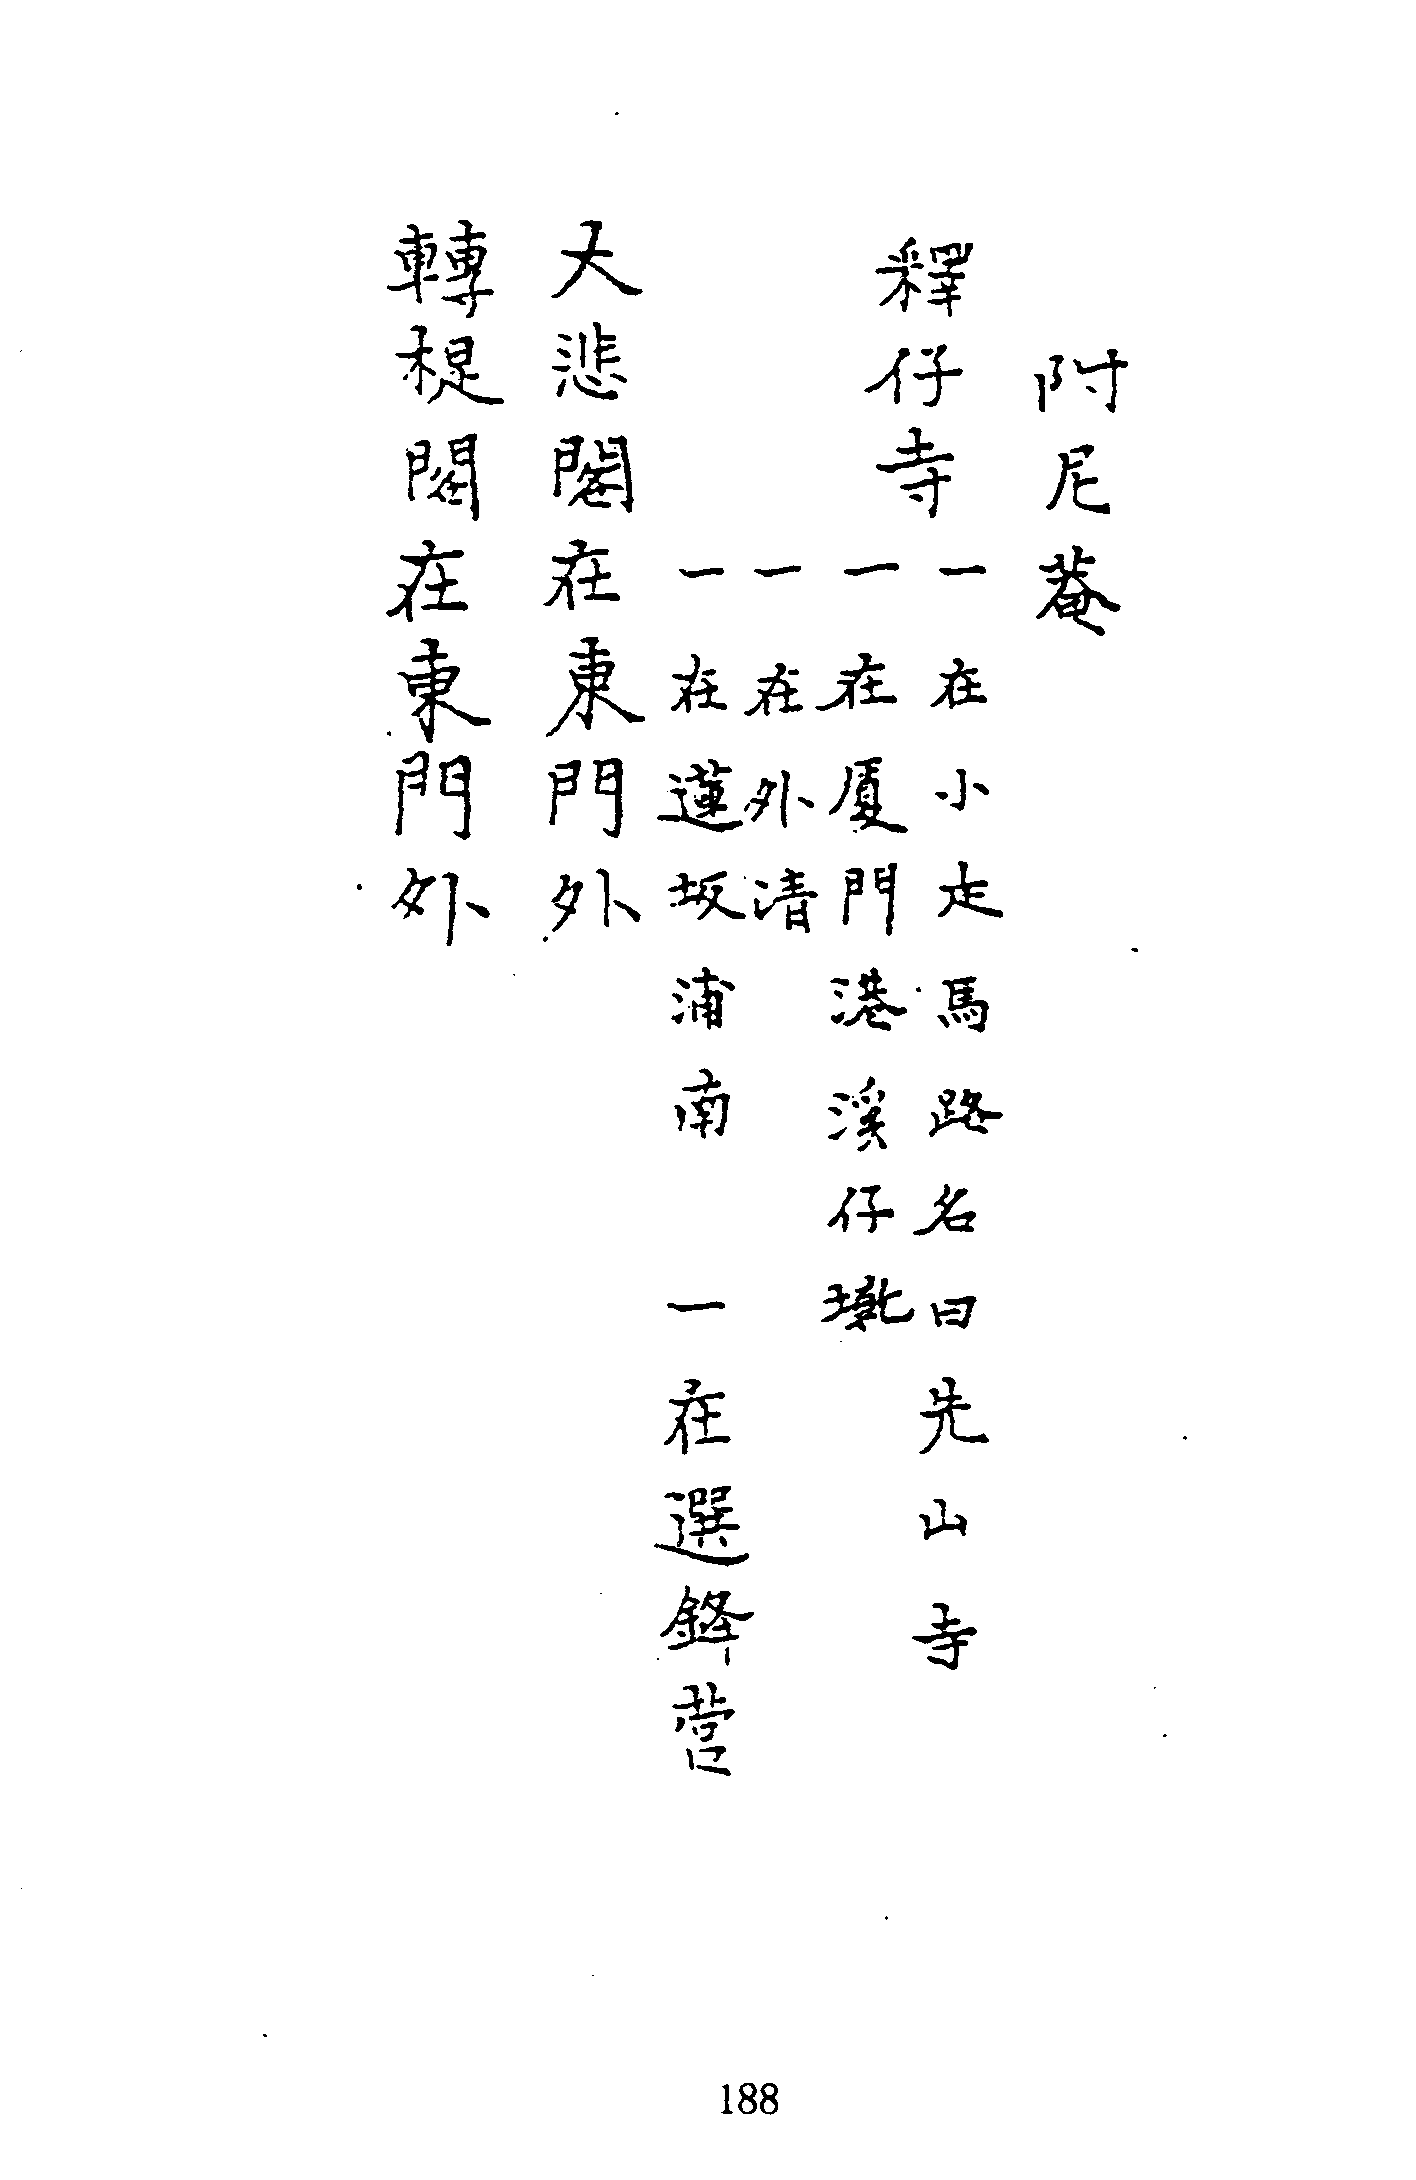 附尼菴
釋仔寺
一在小走馬路名曰先山寺
一在厦門港溪仔墘
一在外清
一在蓮坂浦南 一在選鋒營
大悲閣在東門外
轉楻閣在東門外
188